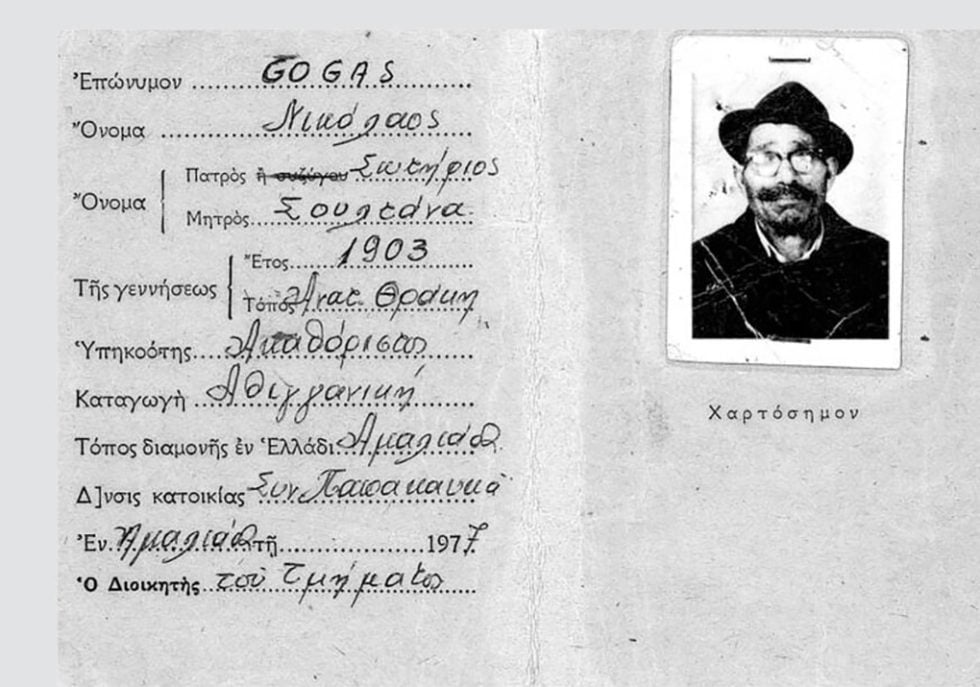 Ἐπώνυμον GOGAS
Ὄνομα Νικόλαος
Ὄνομα
Πατρὸς ἢ συζύγου Σωτήριος
Μητρὸς Σουλτάνα
Τῆς γεννήσεως
Ἔτος 1903
Τόπος Ἀνατ. Θράκη
Ὑπηκοότης Ἀκαθόριστος
Καταγωγὴ Ἀθιγγανική
Τόπος διαμονῆς ἐν Ἑλλάδι Ἀμαλιάδα
Δ]νσις κατοικίας Συν.
Ἐν Ἀμαλιάδα τῇ 1977
Ὁ Διοικητὴς τοῦ Τμήματος
Χαρτόσημον